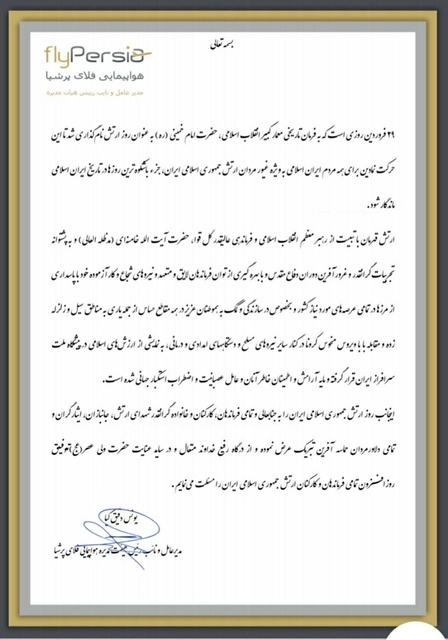 بسمه تعالی
flyPersia
هواپیمایی فلای پرشیا
مدیر عامل و نایب رییس هیات مدیره
۲۹ فروردین روزی است که به فرمان تاریخی معمار کبیر انقلاب اسلامی، حضرت امام خمینی (ره) به عنوان روز ارتش نام گذاری شد تا این
حرکت نمادین برای همه مردم ایران اسلامی به ویژه غیور مردان ارتش جمهوری اسلامی ایران، جزء باشکوه ترین روزها در تاریخ ایران اسلامی
ماندگار شود.
ارتش قهرمان با تبعیت از رهبر معظم انقلاب اسلامی و فرماندهی عالیقدر کل قوا، حضرت آیت الله خامنه ای (مدظله العالی) و به پشتوانه
تجربیات گرانقدر و غرور آفرین دوران دفاع مقدس و با بهره گیری از توان فرماندهان لایق و متعهد و نیروهای شجاع و کارآزموده خود با پاسداری
از مرزها در تمامی عرصه های مورد نیاز کشور و بخصوص در سازندگی و کمک به هموطنان عزیز در همه مقاطع حساس از جمله یاری به مناطق سیل و زلزله
زده و مقابله با بلا ویروس منحوس کرونا در کنار سایر نیروهای مسلح و دستگاههای امدادی و درمانی، به نمایشی از ارزش های اسلامی در پیشگاه ملت
سرافراز ایران قرار گرفته و مایه آرامش و اطمینان خاطر آنان و عامل عصبانیت و اضطراب استکبار جهانی شده است.
اینجانب روز ارتش جمهوری اسلامی ایران را به جنابعالی و تمامی فرماندهان، کارکنان و خانواده گرانقدر شهدای ارتش، جانبازان، ایثارگران و
تمامی دلاورمردان حماسه آفرین تبریک عرض نموده و از درگاه رفیع خداوند متعال و در سایه عنایت حضرت ولی عصر(عج) توفیق
روز افزون تمامی فرماندهان و کارکنان ارتش جمهوری اسلامی ایران را مسئلت می نمایم.
یونس دقیق کیا
مدیرعامل و نائب رئیس هیئت مدیره هواپیمایی فلای پرشیا